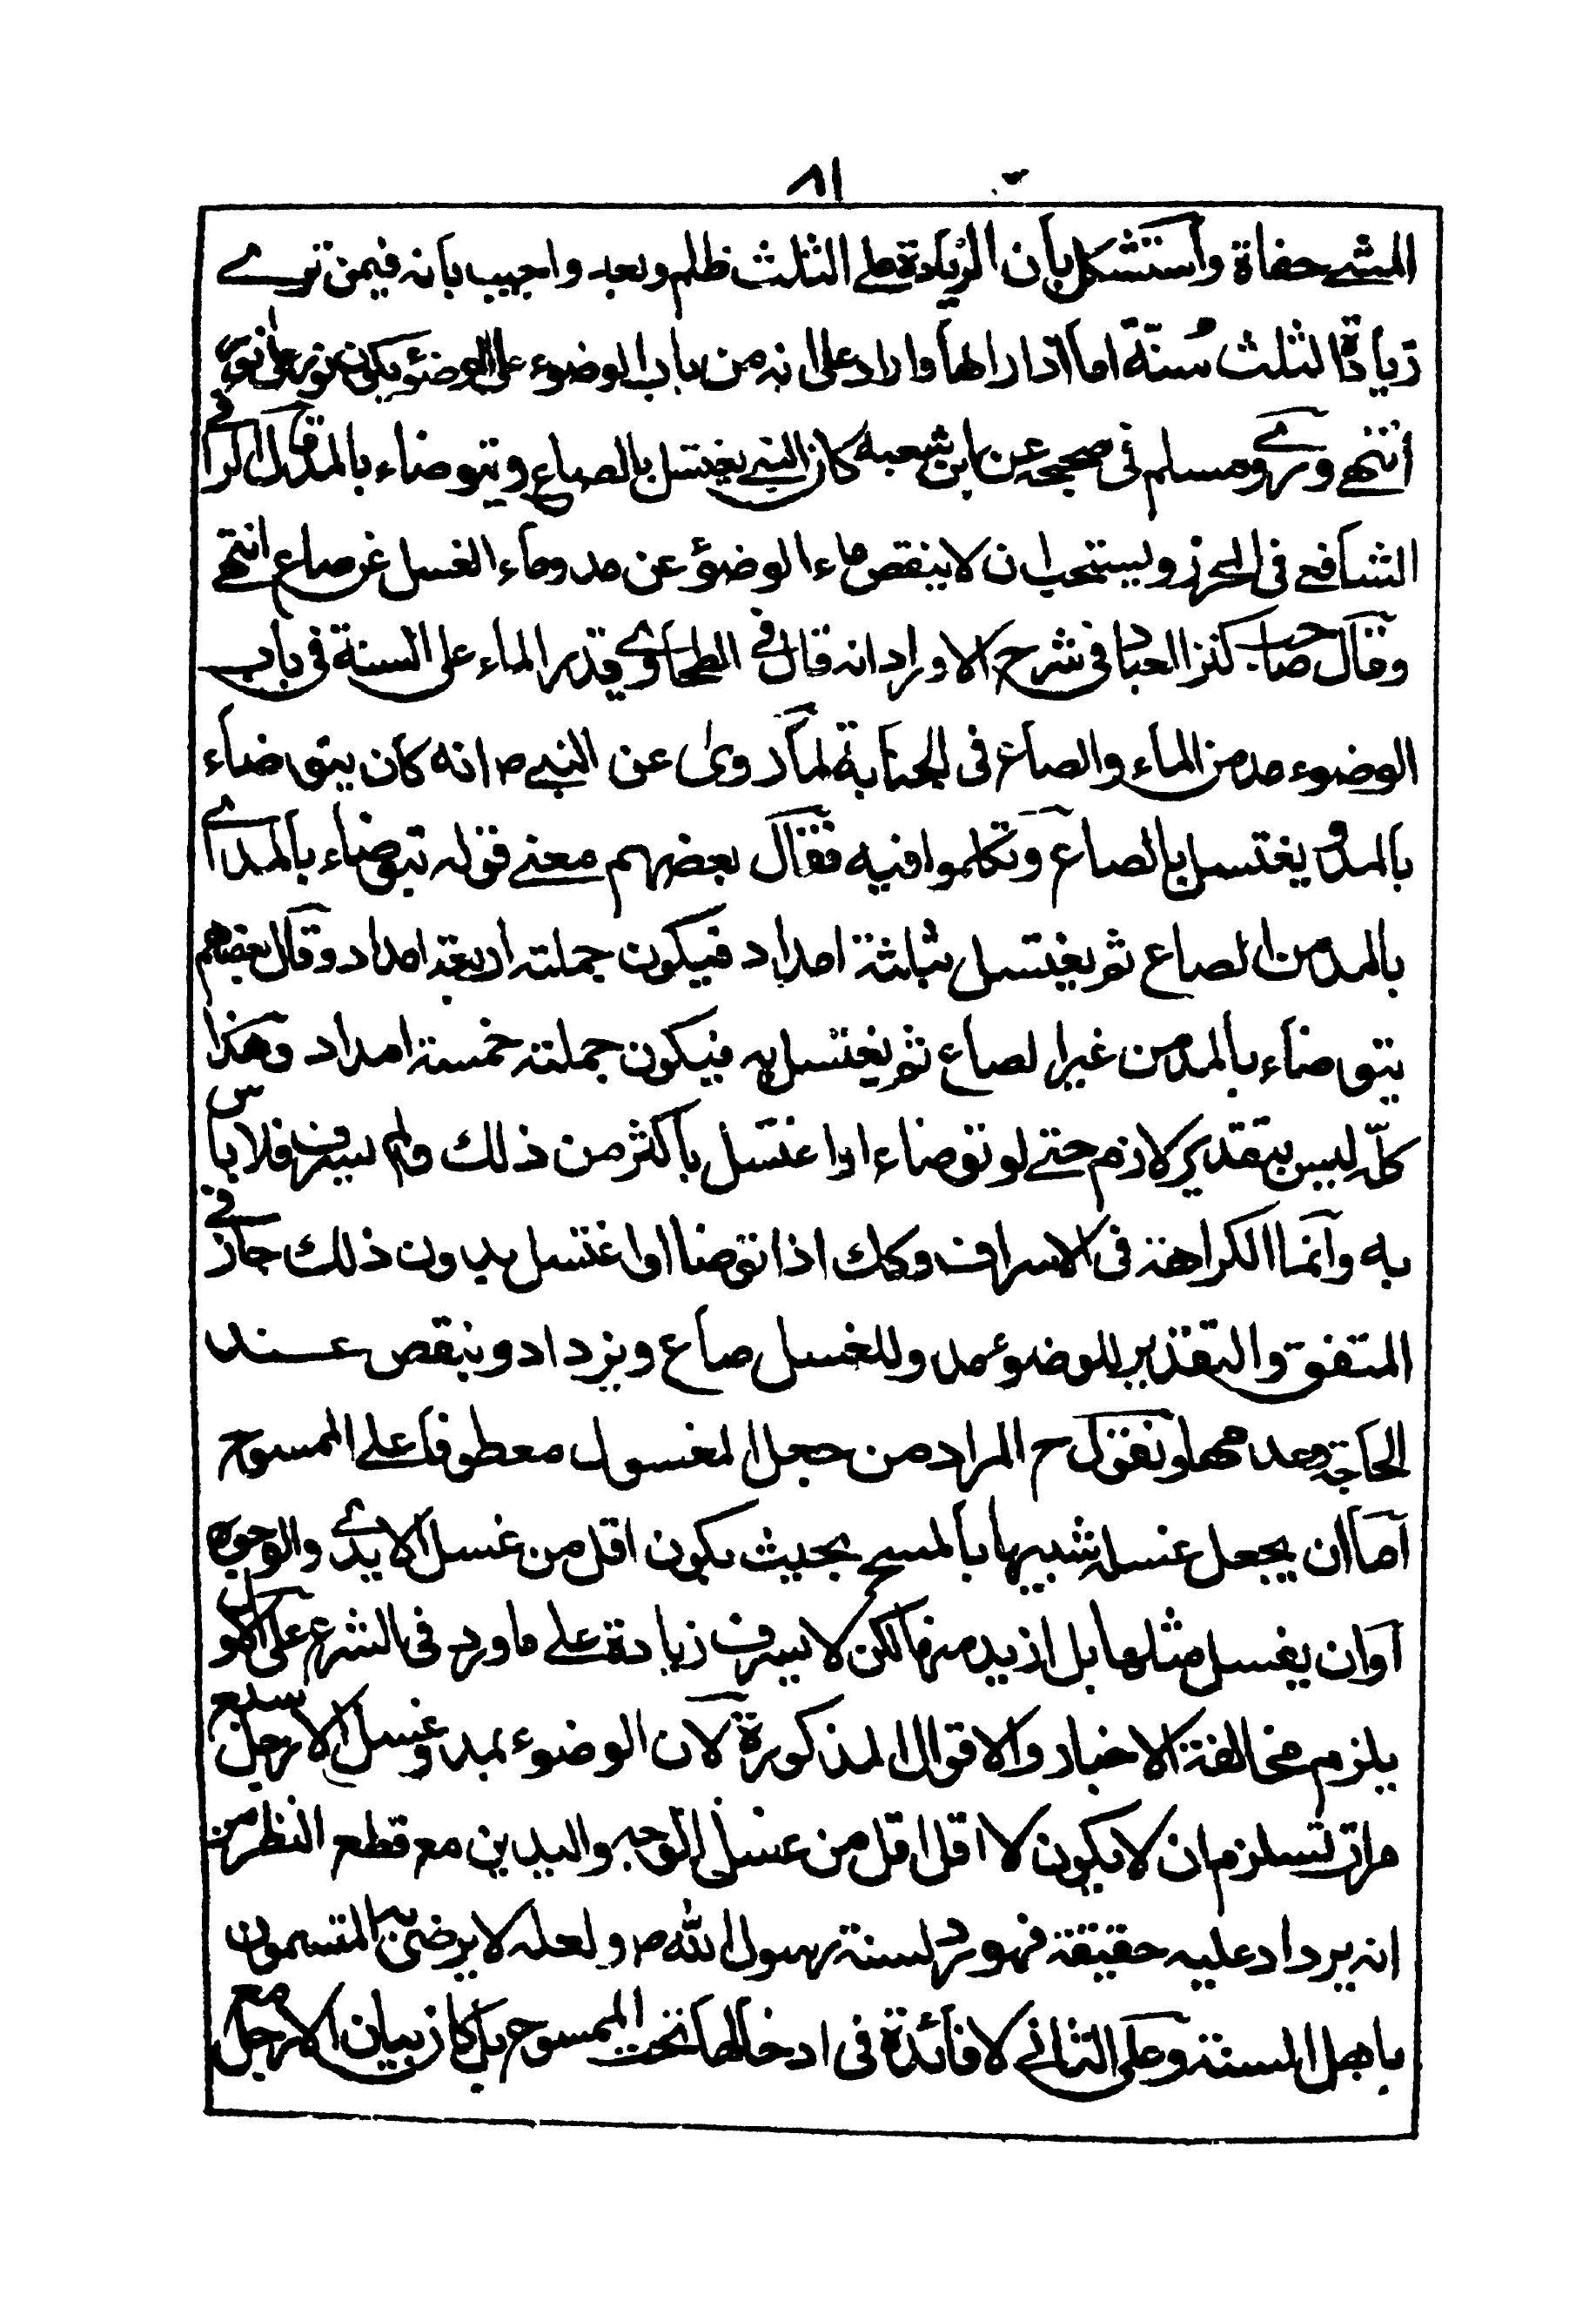 ٨١
المشے حفاة واستشكل بان الزيادة علے الثلث ظلم وبعد واجيب بانه فيمن ترے
زيادة الثلث سنّة اما اذا رالها واراد على انه من باب الوضوء على الوضؤ يكون نور على نور
انتهے وروے ومسلم فى صحيحه عن ابن شعبه كان النبے يغتسل بالصاع ويتوضاء بالمد وقال الرافے
الشافعے فى المحرز ويستحب ان لا ينقص ماء الوضؤ عن مد وماء الغسل عن صاع انتهے
وقال صاحب كنز العباد فى شرح الاوراد انه قال فے الطحاوے قدر الماء على السنة فى باب
الوضوء مد من الماء والصاع فى الجنابة لما روى عن النبے ص انه كان يتوضاء
بالمد ويغتسل بالصاع وتكلموا فيه فقال بعضهم معنے قوله تيوضاء بالمد اے
بالمد من الصاع ثم يغتسل بثلثة امداد فيكون جملته اربعة امداد وقال بعضهم
يتوضاء بالمد من غير الصاع ثم يغتسل به فيكون جملته خمسة امداد وهذا
كلّه ليس بتقدير لازم حتے لو توضاء او اغتسل باكثر من ذلك ولم يسرف فلا باس
به وانما الكراهة فى الاسراف وكك اذا توضا او اغتسل بدون ذلك جاز فے
المتفق والتقدير للوضوء مد وللغسل صاع ويزداد وينقص عند
الحاجة وعدمها ونقول ح المراد من جعل المغسول معطوفا على الممسوح
اما ان يجعل غسله شبيها بالمسح بحيث يكون اقل من غسل الايدے والوجوه
اوان يغسل مثلها بل ازيد منها لكن لا يسرف زيادة علے ما ورد فى الشرع على الاول
يلزم مخالفة الاخبار والاقوال المذكورة لان الوضوء بمد وغسل الارجل سبع
مرات تسلزم ان لا يكون لا اقل اقل من غسل الوجه واليدين مع قطع النظر من
انه يرداد عليه حقيقة فهو رد لسنة رسول الله ص ولعله لا يرضى به المتسمون
باهل السنة وعلى الثانے لا فائدة فى ادخالها تحت الممسوح بل كان بيان الارجل مع